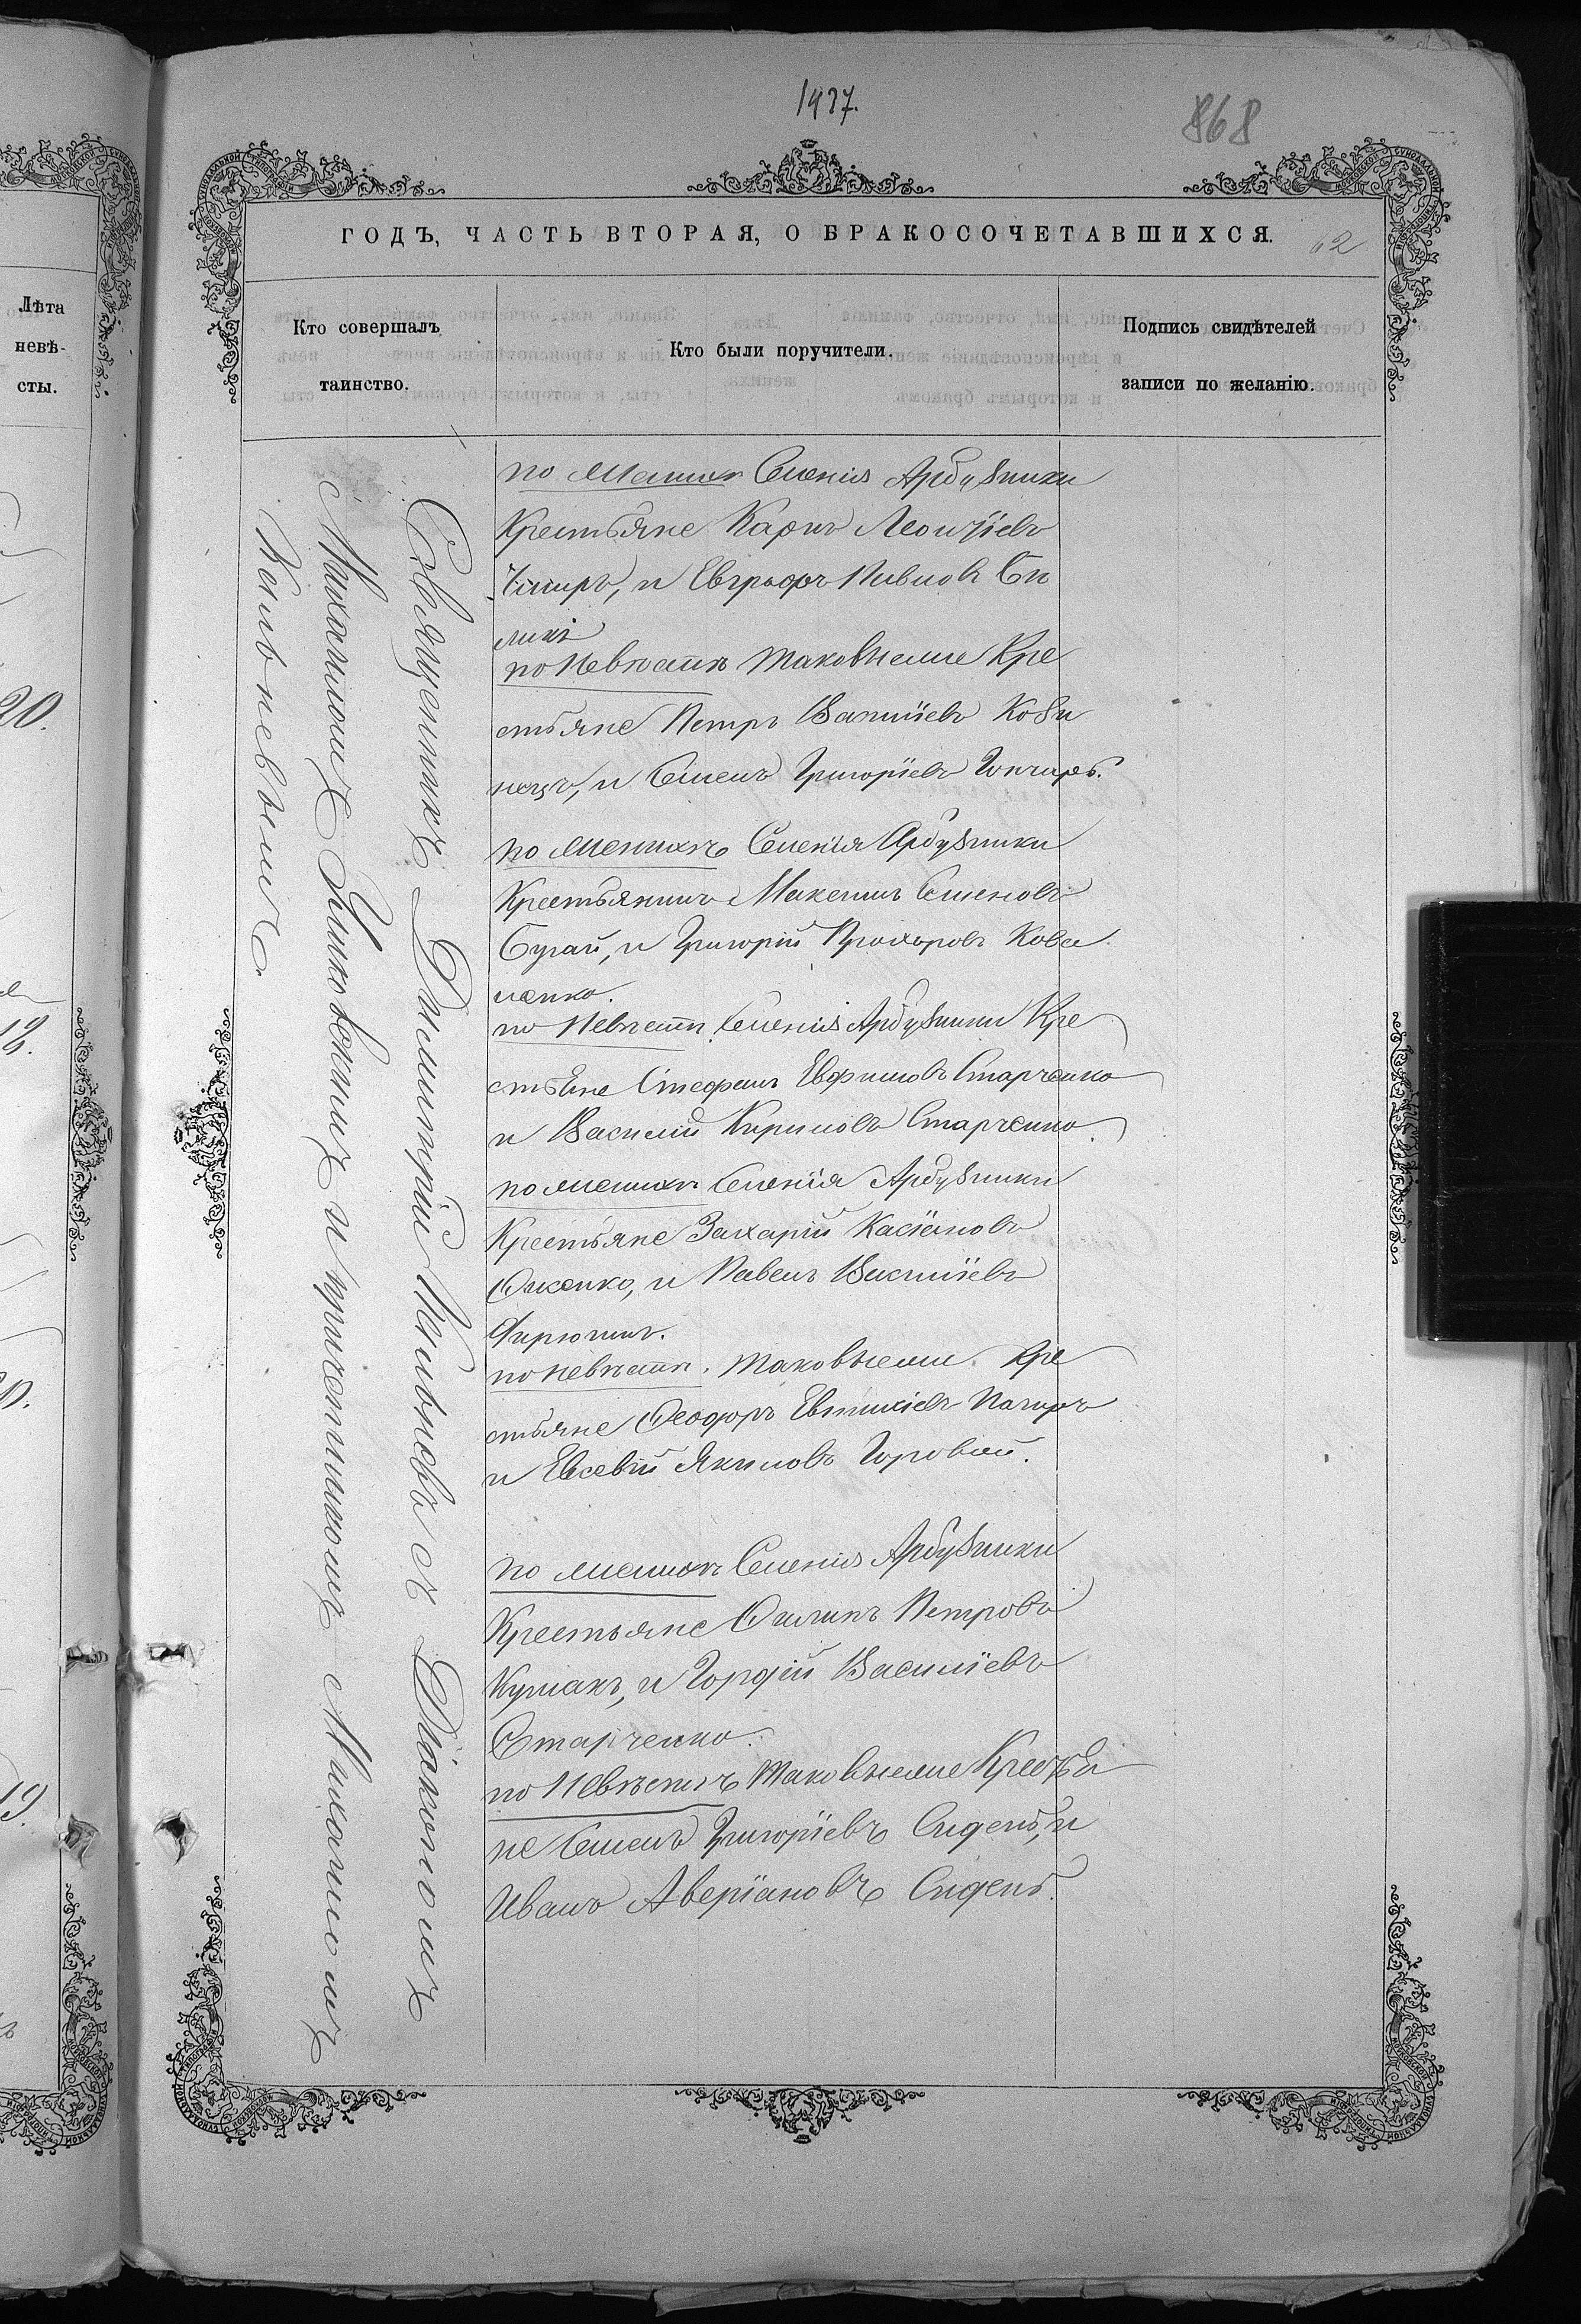 1437.
868
ГОДЪ, ЧАСТЬ ВТОРАЯ, О БРАКОСОЧЕТАВШИХСЯ.
62
Лѣта
невѣ-
сты.
Кто совершалъ
таинство.
Кто были поручители.
Подпись свидѣтелей
записи по желанію.
20.
12.
19.
Священникъ Димитрій Кипневъ съ Діакономъ
Михаиломъ и причетникомъ Михаиломъ
по женихѣ Селенія Арбузинки
Крестьяне Карпъ Леонтіевъ
и Евграфъ Павловъ Би
ликъ
по Невѣстѣ таковыеже Кре
стьяне Петръ Василіевъ Кози
нецъ, и Семенъ Григоріевъ Гончаръ.
по женихѣ Селенія Арбузинки
Крестьянинъ Максимъ Семеновъ
Бугай, и Григорій Прохоровъ Кова
ленко.
по Невѣстѣ Селенія Арбузинки Кре
стьяне Стефанъ Евфимовъ Старченко
и Василий Кириловъ Старченко
по женихѣ Селенія Арбузинки
Крестьяне Захарій Касіановъ
и Павелъ Василіевъ
Фирюлинъ.
по невѣстѣ. таковыеже Кре
стьяне Ѳеодоръ Евтихіевъ
и Евсевій Якимовъ Горовый.
по женихѣ Селенія Арбузинки
Крестьяне Филипъ Петровъ
и Гордѣй Василіевъ
Старченко.
по Невѣстѣ таковыеже Крестья
не Семенъ Григоріевъ Сидень, и
Иванъ Аверіановъ Сидень.